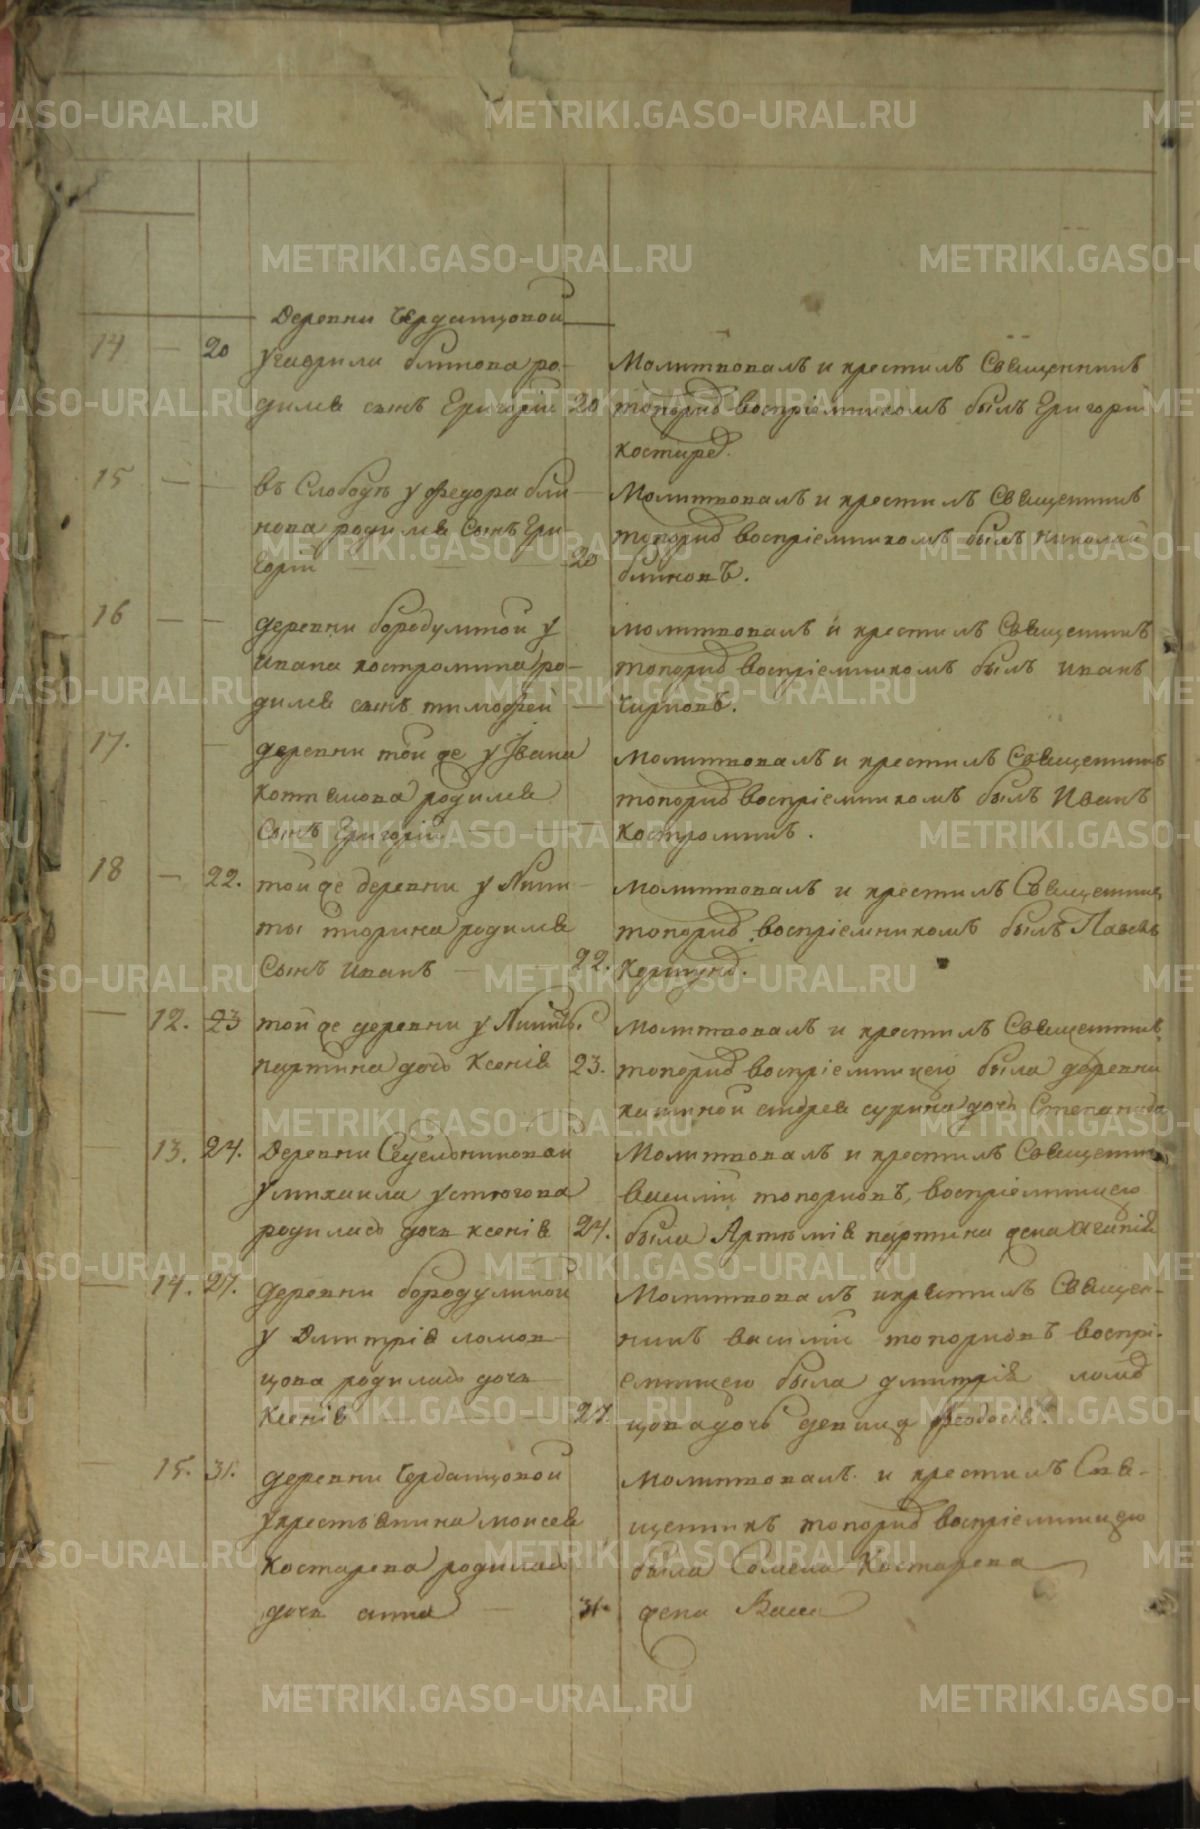 Деревни Чердатцовой
14 — 20 У Гаврила блинова ро-
дился сынъ Григорій 20
Молитвовалъ и крестилъ Священникъ
топорков воспріемникомъ былъ Григорій
костарев.
15 — — въ Слободѣ у федора бли-
нова родился Сынъ Гри-
горій — — — 20
Молитвовалъ и крестилъ Священникъ
топорков воспріемникомъ былъ николай
блиновъ.
16 — — деревни бородулиной у
ивана костромина ро-
дился сынъ тимофей —
молитвовалъ и крестилъ Священникъ
топорков воспріемникомъ былъ иванъ
17. — деревни той же у Ивана
родился
Сынъ Григорій — — —
молитвовалъ и крестилъ Священникъ
топорков воспріемникомъ былъ Иванъ
костроминъ.
18 — 22. той же деревни у Ники-
ты родился
Сынъ иванъ — 22.
молитвовалъ и крестилъ Священникъ
топорков воспріемникомъ былъ Павелъ
— 12. 23 той же деревни у
партина дочь Ксенія 23.
молитвовалъ и крестилъ Священникъ
топорков воспріемницею была деревни
андрея сурина дочь Степанида
— 13. 24. Деревни
У михаила устюгова
родилась дочь ксенія 24.
Молитвовалъ и крестилъ Священникъ
василій топорковъ, воспріемницею
была Артемія партина жена Агапія
— 14. 27. деревни бородулиной
у Дмитрія ломов-
цова родилась дочь
Ксенія — — — 27.
Молитвовалъ и крестилъ Священ-
никъ василій топорковъ воспрі-
емницею была дмитрія ломов
цова дочь девица феодосія
— 15. 31. деревни Чердатцовой
у крестьянина моисея
Костарева родилась
дочь анна — 31.
молитвовалъ и крестилъ Свя-
щенникъ топорков воспріемницею
была Костарева
жена Васса
METRIKI.GASO-URAL.RU